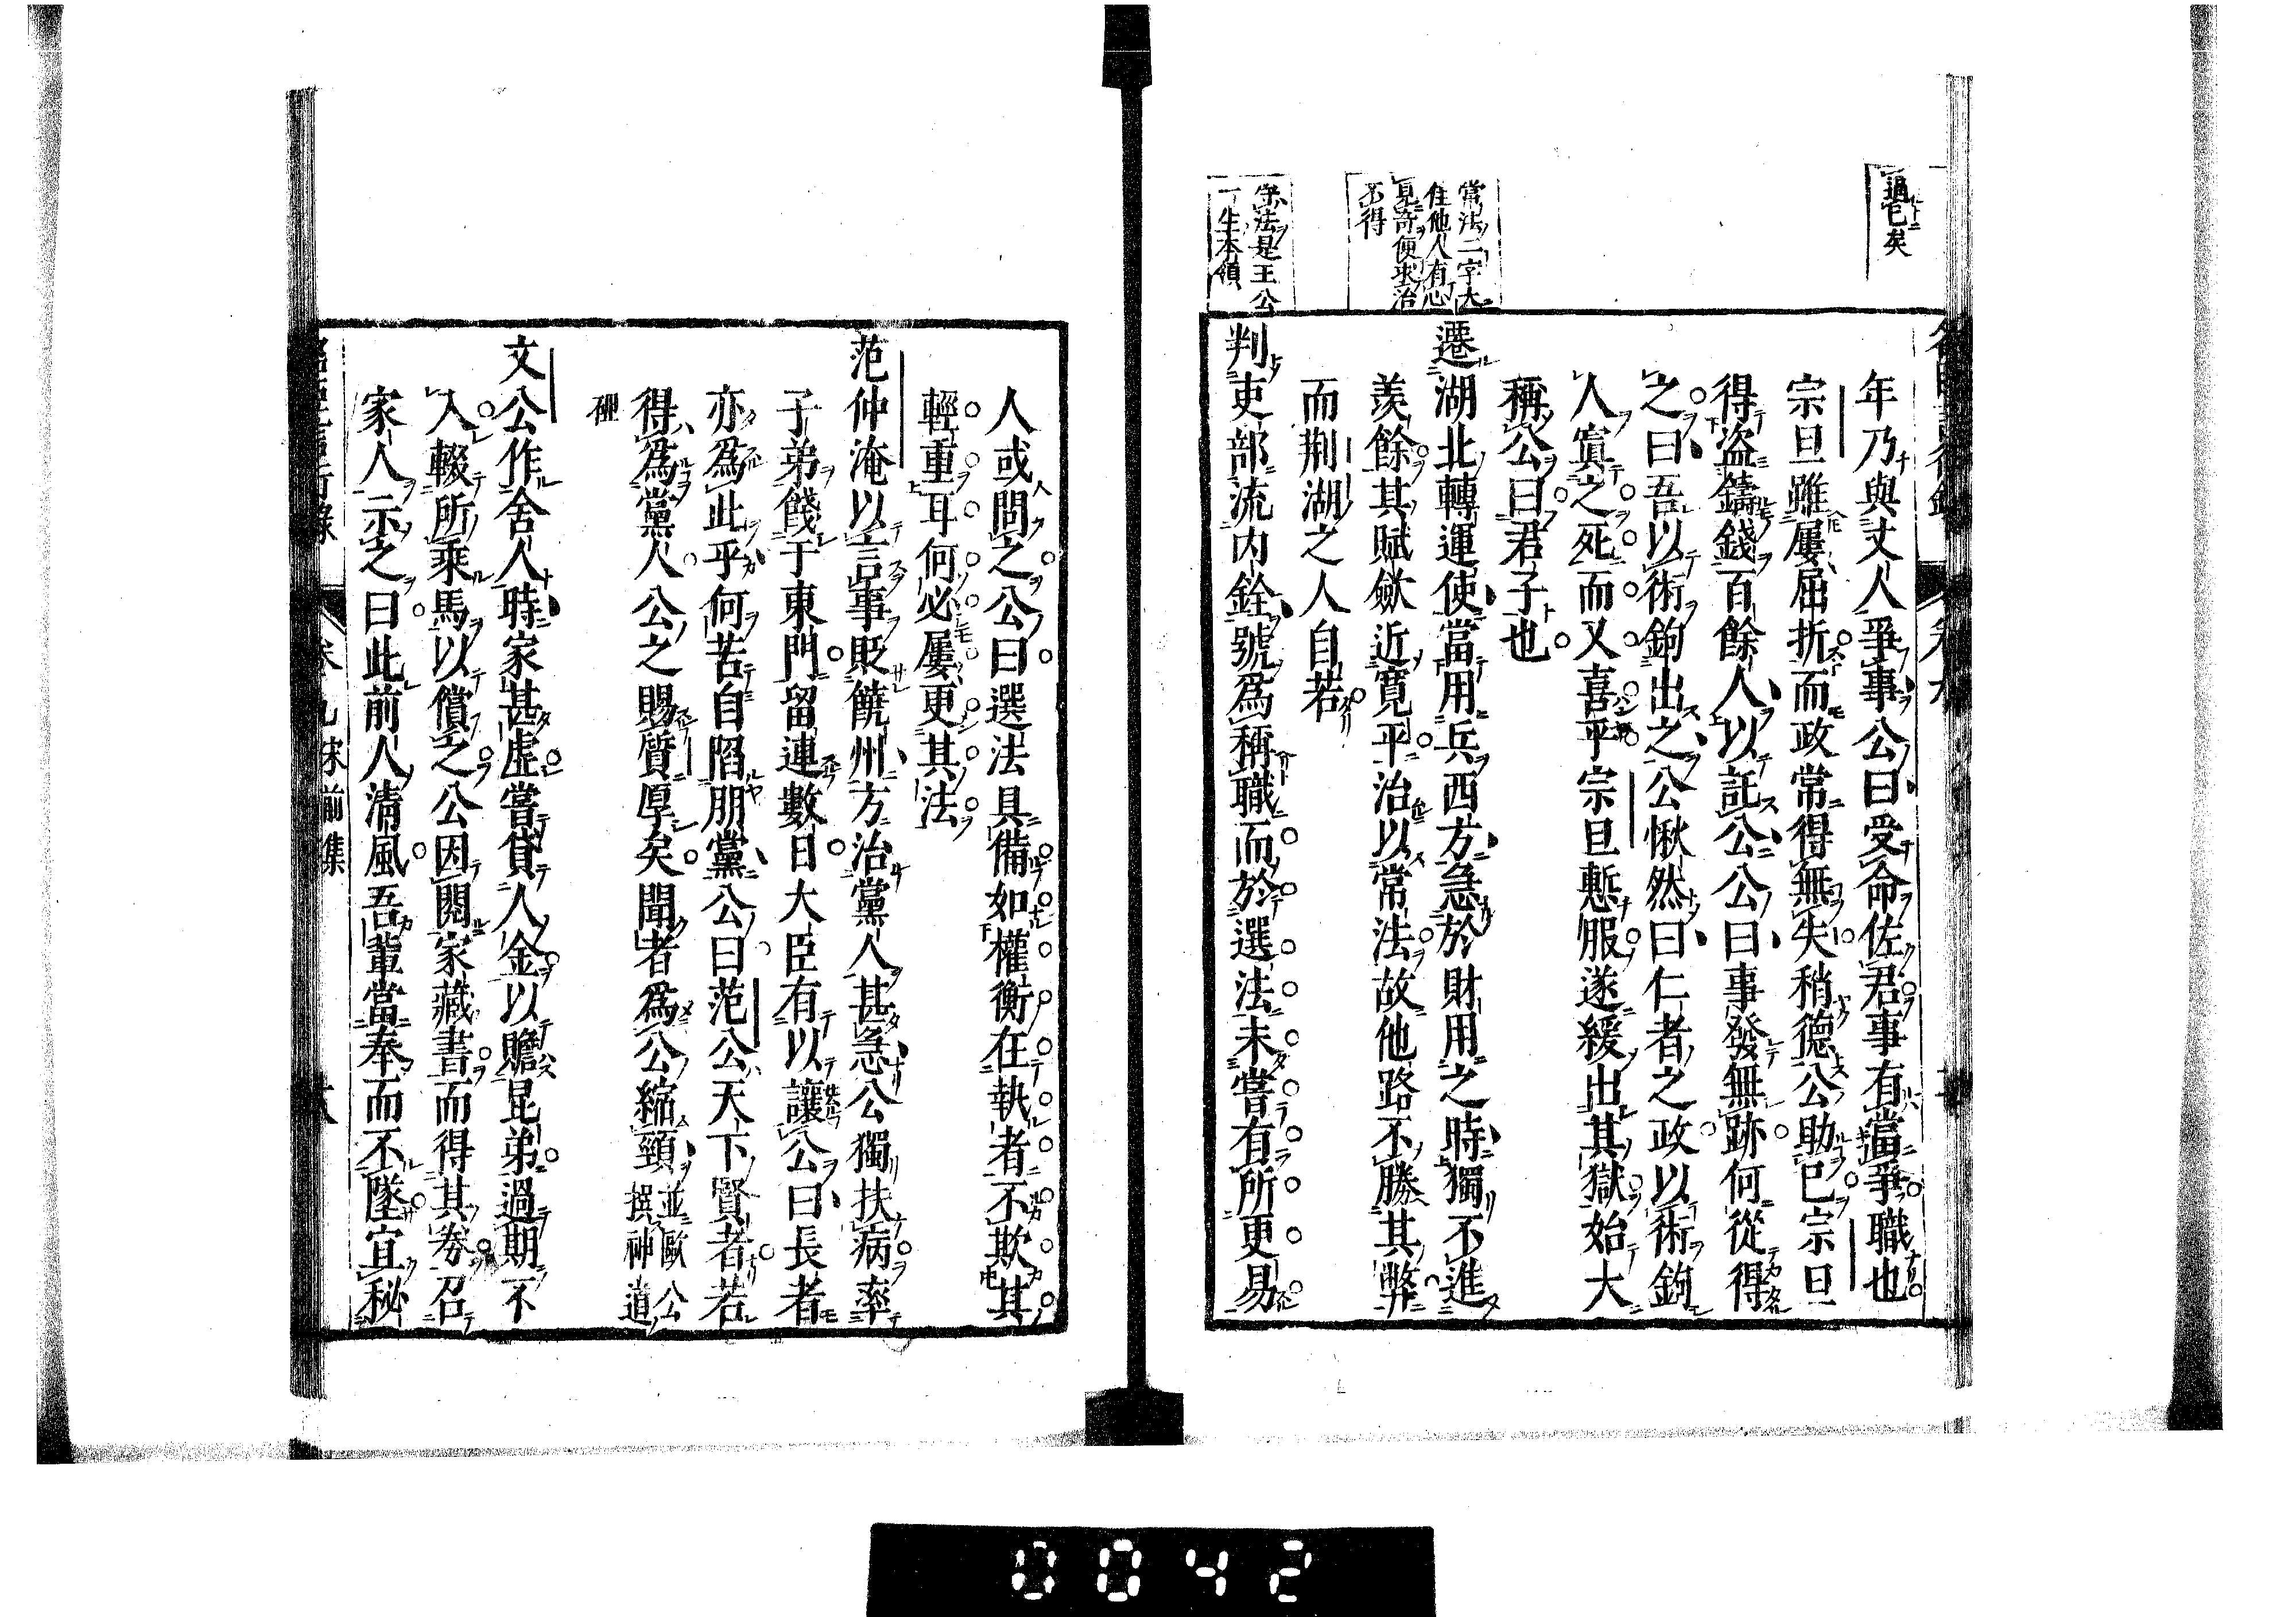 過已矣
當法二字大
住他人有心
見奇便求治
不得
守法是王公
一生本領
年乃與丈人爭事公曰受命佐君事有當爭職也
宗旦雖屢屈折而政常得無失稍德公助已宗旦
得盜鑄錢百餘人以託公公曰事發無跡何從得
之曰吾以術鉤出之公愀然曰仁者之政以術鉤
人寘之死而又喜乎宗旦慙服遂緩出其獄始大
稱公曰君子也
遷湖北轉運使當用兵西方急於財用之時獨不進
羨餘其賦歛近寬平治以常法故他路不勝其弊
而荆湖之人自若
判吏部流内銓號為稱職而於選法未嘗有所更易
人或問之公曰選法具備如權衡在執者不欺其
輕重耳何必屢更其法
范仲淹以言事貶饒州方治黨人甚急公獨扶病率
子弟餞于東門留連數日大臣有以讓公曰長者
亦為此乎何苦自陷朋黨公曰范公天下賢者若
得為黨人公之賜質厚矣聞者為公縮頸並歐公
撰神道
碑
文公作舍人時家甚虛嘗貸人金以贍昆弟過期不
入輟所乘馬以償之公因閱家藏書而得其券召
家人示之曰此前人清風吾輩當奉而不墜宜秘